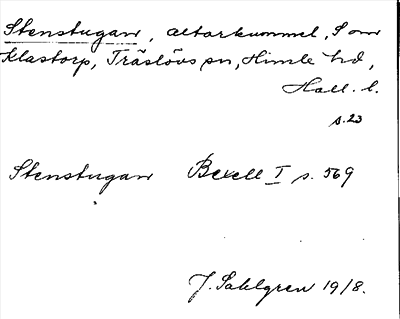 Stenstugan, altarkummel, S om
Klastorp, Träslövs sn, Himle hd,
Hall. l.
s. 23
Stenstugan Bexell I s. 569
J. Sahlgren 19/8.